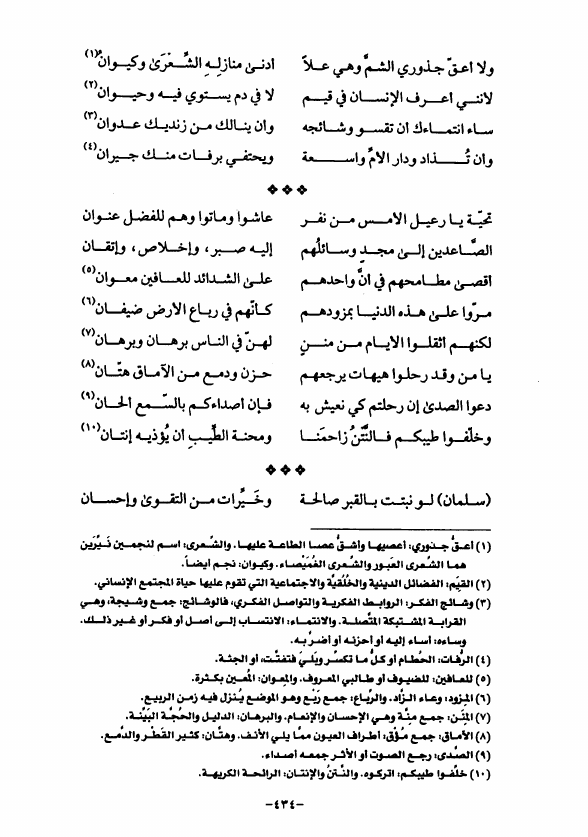 ولا أعقّ جذوري الشمَّ وهي علاً أدنىٰ منازلِهِ الشِّعْرَىٰ وكيوانُ(١)
لأنني أعرف الإنسان في قيم لا في دم يستوي فيه وحيوان(٢)
ساء انتماءك أن تقسو وشائجه وأن ينالك من زنديك عدوان(٣)
وأن تُذاد ودار الأمِّ واسعة ويحتفي برفات منك جيران(٤)
❖❖❖
تحيّة يا رعيل الأمس من نفر عاشوا وماتوا وهم للفضل عنوان
الصَّاعدين إلىٰ مجدٍ وسائلُهم إليه صبر، وإخلاص، وإتقان
أقصىٰ مطامحهم في أنَّ واحدهم علىٰ الشدائد للعافين معوان(٥)
مرّوا علىٰ هذه الدنيا بمزودهم كأنّهم في رباع الأرض ضيفان(٦)
لكنهم أثقلوا الأيام من مننٍ لهنّ في الناس برهان وبرهان(٧)
يا من وقد رحلوا هيهات يرجعهم حزن ودمع من الآماق هتّان(٨)
دعوا الصدىٰ إن رحلتم كي نعيش به فإن أصداءكم بالسَّمع ألحان(٩)
وخلّفوا طيبكم فالنَّتنُ زاحمَنا ومحنة الطِّيبِ أن يُؤذيه إنتان(١٠)
❖❖❖
(سلمان) لو نبتت بالقبر صالحة وخَيِّرات من التقوىٰ وإحسان
(١) أعقُّ جذوري: أعصيها وأشقُّ عصا الطاعة عليها. والشِّعرى: اسم لنجمين نَيِّرَين
هما الشِّعرى العَبور والشِّعرى الغُمَيْصاء. وكيوان: نجم أيضاً.
(٢) القِيَم: الفضائل الدينية والخُلُقيَّة والاجتماعية التي تقوم عليها حياة المجتمع الإنساني.
(٣) وشائج الفكر: الروابط الفكرية والتواصل الفكري، فالوشائج: جمع وشيجة، وهي
القرابة المشتبكة المتَّصلة. والانتماء: الانتساب إلى أصل أو فكر أو غير ذلك.
وساءه: أساء إليه أو أحزنه أو أضرَّ به.
(٤) الرُّفات: الحُطام أو كلُّ ما تكسَّر وبَليَ فتفتَّت، أو الجثة.
(٥) للعافين: للضيوف أو طالبي المعروف. والمِعوان: المُعين بكثرة.
(٦) المِزود: وعاء الزَّاد. والرِّباع: جمع رَبْع وهو الموضع يُنزل فيه زمن الربيع.
(٧) المِنَن: جمع مِنَّة وهي الإحسان والإنعام. والبرهان: الدليل والحُجَّة البَيِّنة.
(٨) الآماق: جمع مُؤْق: أطراف العيون ممَّا يلي الأنف. وهتَّان: كثير القَطْر والدَّمع.
(٩) الصَّدى: رجع الصوت أو الأثر جمعه أصداء.
(١٠) خلِّفوا طيبكم: اتركوه. والنَّتنُ والإنتان: الرائحة الكريهة.
-٤٣٤-